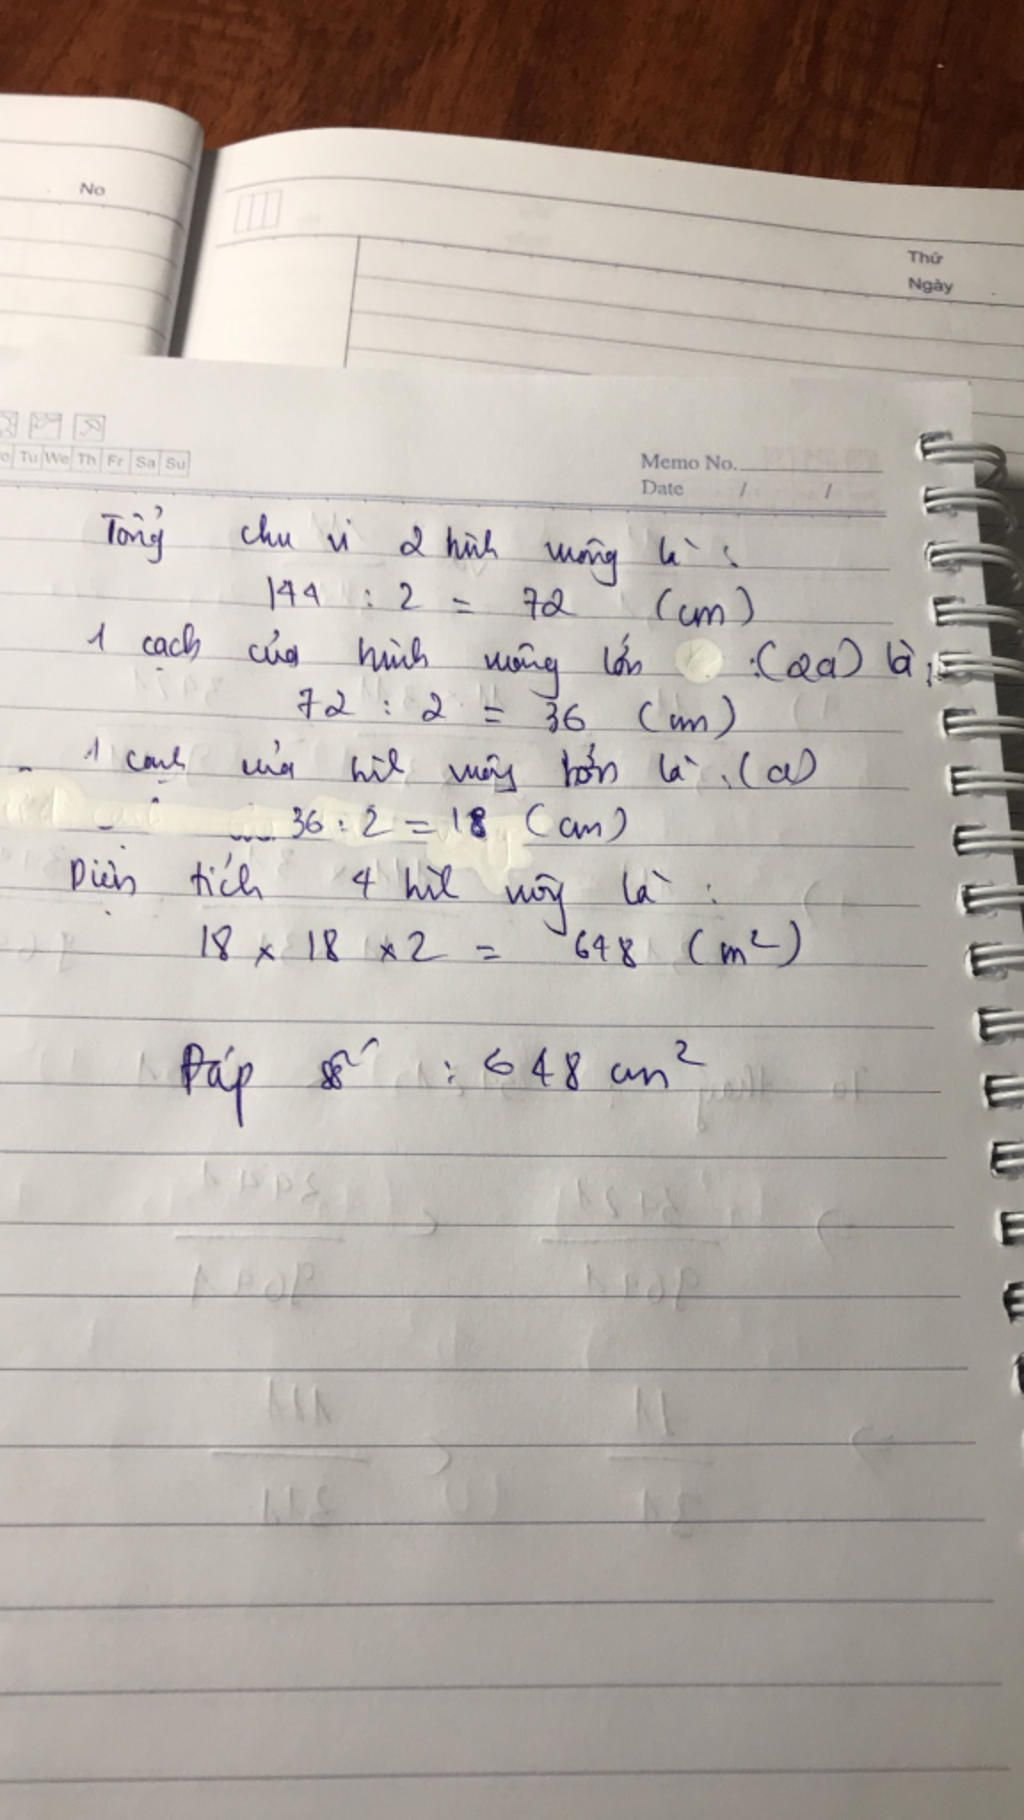 No
Thứ
Ngày
Tu We Th Fr Sa Su
Memo No.
Date / /
Tổng chu vi 2 hình vuông là :
144 : 2 = 72 (cm)
1 cạch của hình vuông lớn :(2a) là :
72 : 2 = 36 (cm)
1 cạnh của hình vuông là : (a)
36 : 2 = 18 (cm)
Diện tích 4 hình vuông là :
18 x 18 x 2 = 648 (m²)
Đáp số : 648 cm²